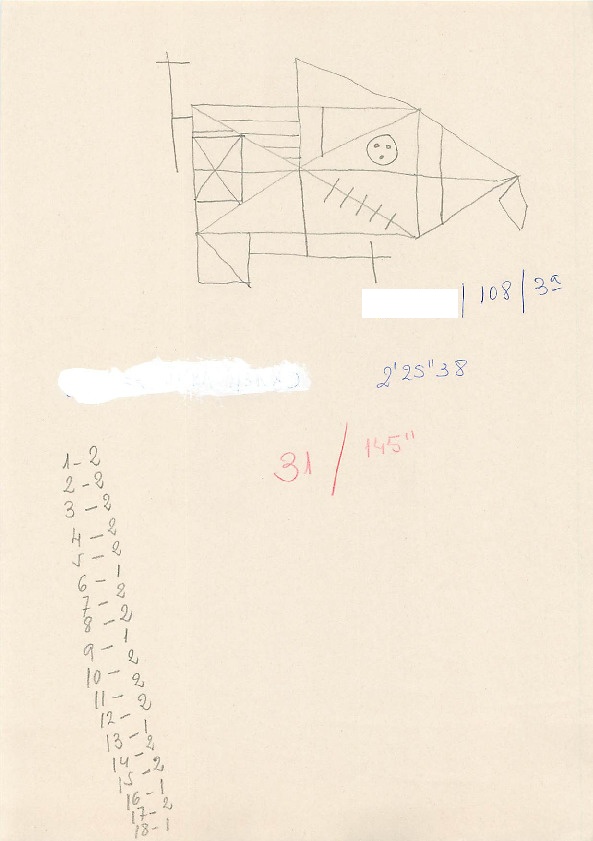 | 108 | 3ª
2'25"38
31 / 145"
1 - 2
2 - 2
3 - 2
4 - 2
5 - 2
6 - 1
7 - 2
8 - 2
9 - 1
10 - 2
11 - 2
12 - 2
13 - 1
14 - 2
15 - 2
16 - 1
17 - 2
18 - 1